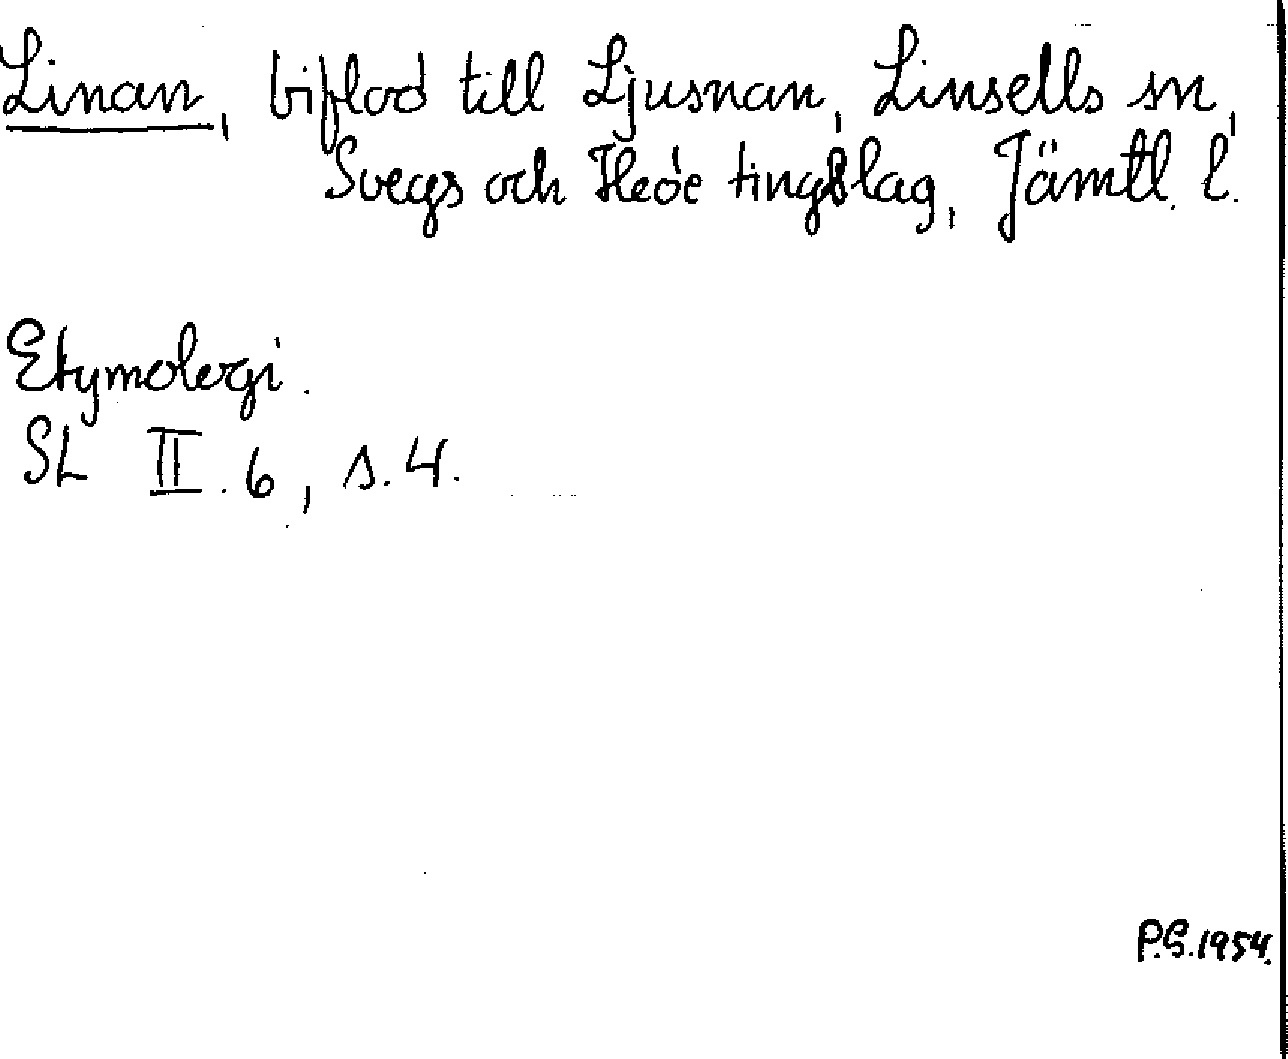 Linan, biflod till Ljusnan, Linsells sn,
Svegs och Hede tingslag, Jämtl. l.
Etymologi.
SL II. 6, s. 4.
P.G. 1954.